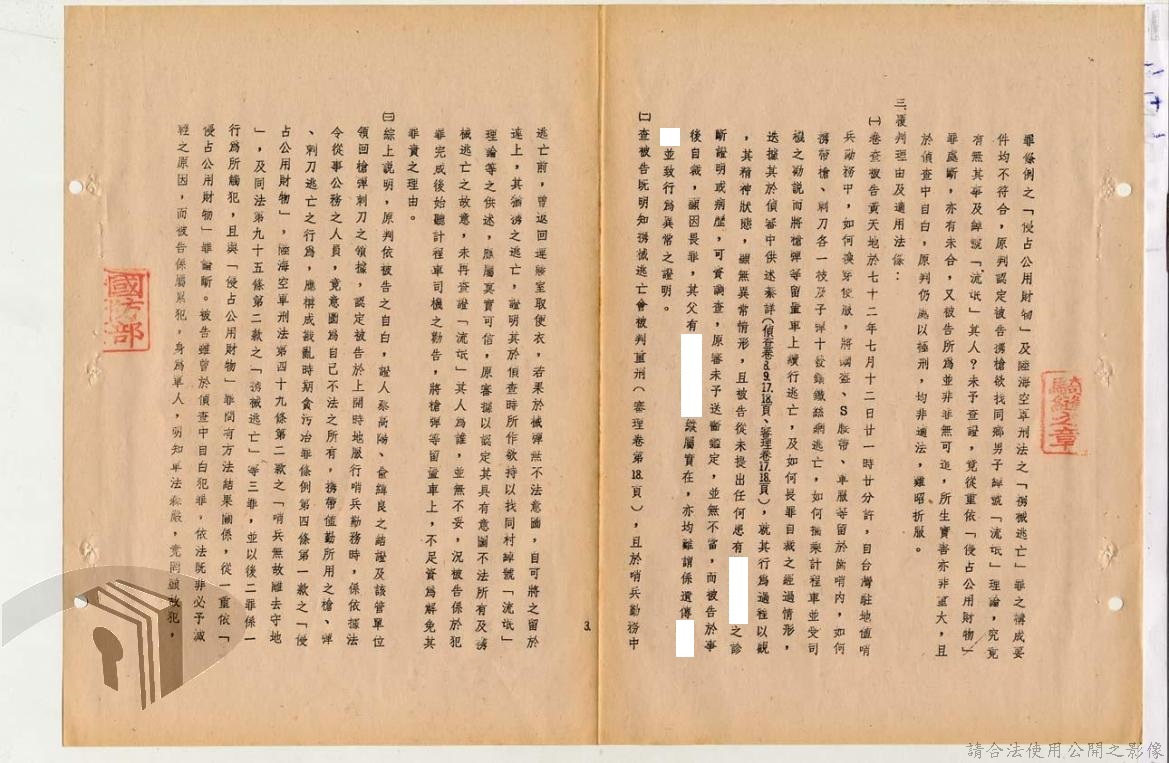 罪條例之「侵占公用財物」及陸海空軍刑法之「携械逃亡」罪之構成要
件均不符合，原判認定被告携槍欲找同鄉男子綽號「流氓」理論，究竟
有無其事及綽號「流氓」其人？未予查證，竟從重依「侵占公用財物」
罪處斷，亦有未合，又被告所為並非罪無可逭，所生實害亦非重大，且
於偵查中自白，原判仍處以極刑，均非適法，難昭折服。
三、覆判理由及適用法條：
㈠卷查被告黃天地於七十二年七月十二日廿一時廿分許，自台灣駐地值哨
兵勤務中，如何換穿便服，將鋼盔、S腰帶、軍服等留於崗哨內，如何
携帶槍、刺刀各一枝及子彈十發鑽鐵絲網逃亡，如何搭乘計程車並受司
機之勸說而將槍彈等留置車上續行逃亡，及如何畏罪自裁之經過情形，
迭據其於偵審中供述綦詳（偵查卷8.9.17.18.頁、審理卷17.18.頁），就其行為過程以觀
，其精神狀態，顯無異常情形，且被告從未提出任何患有 之診
斷證明或病歷，可資調查，原審未予送醫鑑定，並無不當，而被告於事
後自裁，顯因畏罪，其父有 縱屬實在，亦均難謂係遺傳
並致行為異常之證明。
㈡查被告既明知携械逃亡會被判重刑（審理卷第18.頁），且於哨兵勤務中
3.
逃亡前，曾返回運輸室取便衣，若果於械彈無不法意圖，自可將之留於
連上，其猶携之逃亡，證明其於偵查時所作欲持以找同村綽號「流氓」
理論等之供述，應屬真實可信，原審據以認定其具有意圖不法所有及携
械逃亡之故意，未再查證「流氓」其人為誰，並無不妥，況被告係於犯
罪完成後始聽計程車司機之勸告，將槍彈等留置車上，不足資為解免其
罪責之理由。
㈢綜上說明，原判依被告之自白，證人蔡高陽、俞緯良之結證及該管單位
領回槍彈刺刀之領據，認定被告於上開時地服行哨兵勤務時，係依據法
令從事公務之人員，竟意圖為自己不法之所有，携帶值勤所用之槍、彈
、刺刀逃亡之行為，應構成戡亂時期貪污治罪條例第四條第一款之「侵
占公用財物」，陸海空軍刑法第四十九條第二款之「哨兵無故離去守地
」，及同法第九十五條第二款之「携械逃亡」等三罪，並以後二罪係一
行為所觸犯，且與「侵占公用財物」罪間有方法結果關係，從一重依「
侵占公用財物」罪論斷。被告雖曾於偵查中自白犯罪，依法既非必予減
輕之原因，而被告係屬累犯，身為軍人，明知軍法森嚴，竟罔顧故犯，
國防部
騎縫之章
請合法使用公開之影像